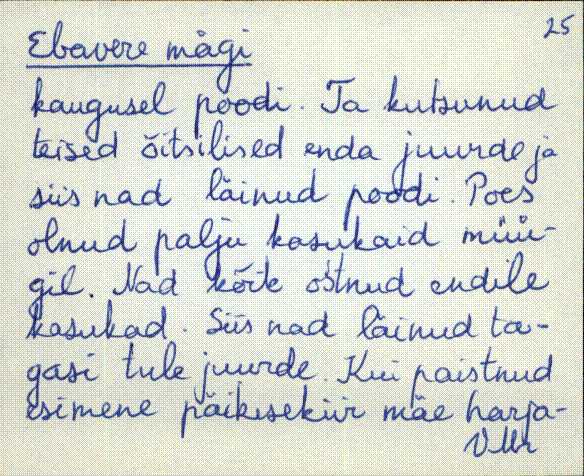 25
Ebavere mägi
kaugusel poodi. Ta kutsunud
teised õitsilised enda juurde ja
siis nad läinud poodi. Poes
olnud palju kasukaid müü-
gil. Nad kõik ostnud endile
kasukad. Siis nad läinud ta-
gasi tule juurde. Kui paistnud
esimene päikesekiir mäe harja-